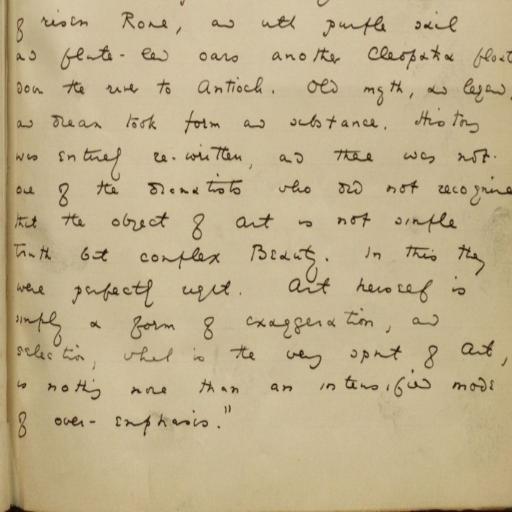 of risen Rome, and with purple sail
and flute-led oars another Cleopatra float
down the river to Antioch. Old myth, and legend,
and dream took form and substance. History
was entirely re-written, and there was not
one of the dramatists who did not recognise
that the object of Art is not simple
truth but complex Beauty. In this they
were perfectly right. Art herself is
simply a form of exaggeration, and
selection, which is the very spirit of Art,
is nothing more than an intensified mode
of over-emphasis."